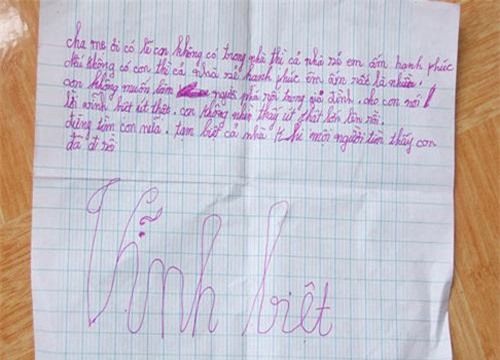 cha mẹ ơi có lẽ con không có trong nhà thì cả nhà sẽ em ấm hạnh phúc
nếu không có con thì cả nhà sẽ hạnh phúc êm ấm rất là nhiều.
con không muốn làm người nhà rối trong gia đình. cho con nói 1
lời vĩnh biệt út thật. con không nhìn thấy út thật lớn lên rồi.
đừng tìm con nữa. tạm biệt cả nhà khi mọi người tìm thấy con
đã đi rồ
Vĩnh biệt